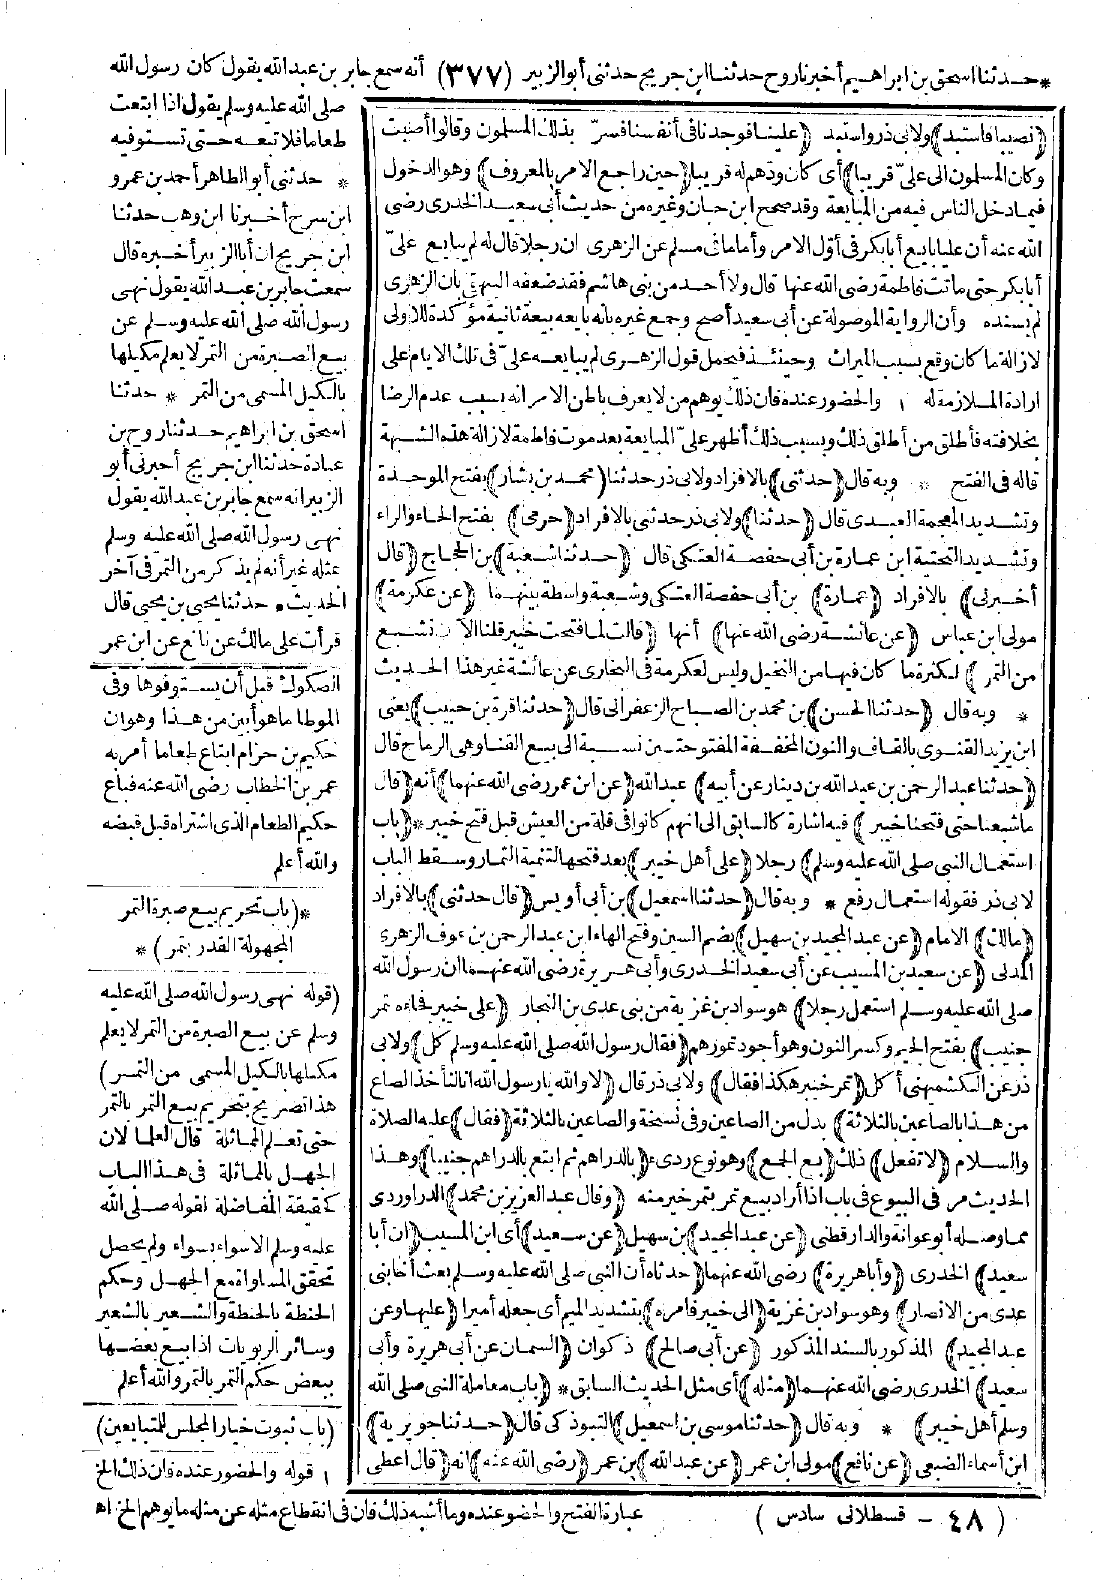 * حدثنا اسحق بن ابراهيم أخبرنا روح حدثنا ابن جريج حدثنى أبو الزبير (٣٧٧) أنه سمع جابر بن عبد الله يقول كان رسول الله
(نصيبا فاستبد) ولابى ذر واستبد (علينا فوجدنا فى أنفسنا فسرّ) بذلك المسلمون وقالوا أصبت
وكان المسلمون الى علىّ قريبا) أى كان ودهم له قريبا (حين راجع الامر بالمعروف) وهو الدخول
فيما دخل الناس فيه من المبايعة وقد صحح ابن حبان وغيره من حديث أبى سعيد الخدرى رضى
الله عنه أن عليا بايع أبا بكر فى أوّل الامر وأما ما فى مسلم عن الزهرى ان رجلا قال له لم يبايع علىّ
أبا بكر حتى ماتت فاطمة رضى الله عنها قال ولا أحد من بنى هاشم فقد ضعفه البيهقى بان الزهرى
لم يسنده وأن الرواية الموصولة عن أبى سعيد أصح وجمع غيره بانه بايعه بيعة ثانية مؤكدة للاولى
لازالة ما كان وقع بسبب الميراث وحينئذ فيحمل قول الزهرى لم يبايعه علىّ فى تلك الايام على
ارادة الملازمة له ١ والحضور عنده فان ذلك يوهم من لا يعرف باطن الامر انه بسبب عدم الرضا
بخلافته فأطلق من أطلق ذلك وبسبب ذلك أظهر علىّ المبايعة بعد موت فاطمة لازالة هذه الشبهة
قاله فى الفتح * وبه قال (حدثنى) بالافراد ولابى ذر حدثنا (محمد بن بشار) بفتح الموحدة
وتشديد المعجمة العبدى قال (حدثنا) ولابى ذر حدثنى بالافراد (حرمى) بفتح الحاء والراء
وتشديد التحتية ابن عمارة بن أبى حفصة العتكى قال (حدثنا شعبة) بن الحجاج (قال
أخبرنى) بالافراد (عمارة) بن أبى حفصة العتكى وشعبة واسطة بينهما (عن عكرمة)
مولى ابن عباس (عن عائشة رضى الله عنها) أنها (قالت لما فتحت خيبر قلنا الآن نشبع
من التمر) لكثرة ما كان فيها من النخيل وليس لعكرمة فى البخارى عن عائشة غير هذا الحديث
* وبه قال (حدثنا الحسن) بن محمد بن الصباح الزعفرانى قال (حدثنا قرة بن حبيب) يعنى
ابن يزيد القنوى بالقاف والنون المخففة المفتوحتين نسبة الى بيع القنا وهى الرماح قال
(حدثنا عبد الرحمن بن عبد الله بن دينار عن أبيه) عبد الله (عن ابن عمر رضى الله عنهما) أنه (قال
ما شبعنا حتى فتحنا خيبر) فيه اشارة كالسابق الى انهم كانوا فى قلة من العيش قبل فتح خيبر * (باب
استعمال النبى صلى الله عليه وسلم) رجلا (على أهل خيبر) بعد فتحها لتنمية الثمار وسقط الباب
لابى ذر فقوله استعمال رفع * وبه قال (حدثنا اسمعيل) بن أبى أويس (قال حدثنى) بالافراد
(مالك) الامام (عن عبد المجيد بن سهيل) بضم السين وفتح الهاء ابن عبد الرحمن بن عوف الزهرى
المدنى (عن سعيد بن المسيب عن أبى سعيد الخدرى وأبى هريرة رضى الله عنهما ان رسول الله
صلى الله عليه وسلم استعمل رجلا) هو سواد بن غزية من بنى عدى بن النجار (على خيبر فجاءه تمر
جنيب) بفتح الجيم وكسر النون وهو أجود تمورهم (فقال رسول الله صلى الله عليه وسلم كل) ولابى
ذر عن الكشميهنى أكل (تمر خيبر هكذا فقال) ولابى ذر قال (لا والله يا رسول الله انا لنأخذ الصاع
من هذا بالصاعين بالثلاثة) بدل من الصاعين وفى نسخة والصاعين بالثلاثة (فقال) عليه الصلاة
والسلام (لا تفعل) ذلك (بع الجمع) وهو نوع ردىء (بالدراهم ثم ابتع بالدراهم جنيبا) وهذا
الحديث مر فى البيوع فى باب اذا أراد بيع تمر بتمر خير منه (وقال عبد العزيز بن محمد) الدراوردى
مما وصله أبو عوانة والدارقطنى (عن عبد المجيد) بن سهيل (عن سعيد) أى ابن المسيب (ان أبا
سعيد) الخدرى (وأبا هريرة) رضى الله عنهما (حدثاه أن النبى صلى الله عليه وسلم بعث أخا بنى
عدى من الانصار) وهو سواد بن غزية (الى خيبر فامره) بتشديد الميم أى جعله أميرا (عليها وعن
عبد المجيد) المذكور بالسند المذكور (عن أبى صالح) ذكوان (السمان عن أبى هريرة وأبى
سعيد) الخدرى رضى الله عنهما (مثله) أى مثل الحديث السابق * (باب معاملة النبى صلى الله
وسلم أهل خيبر) * وبه قال (حدثنا موسى بن اسمعيل) التبوذكى قال (حدثنا جويرية)
ابن أسماء الضبعى (عن نافع) مولى ابن عمر (عن عبد الله) بن عمر (رضى الله عنه) انه (قال أعطى
صلى الله عليه وسلم يقول اذا ابتعت
طعاما فلا تبعه حتى تستوفيه
* حدثنى أبو الطاهر أحمد بن عمرو
ابن سرح أخبرنا ابن وهب حدثنا
ابن جريج ان أبا الزبير أخبره قال
سمعت جابر بن عبد الله يقول نهى
رسول الله صلى الله عليه وسلم عن
بيع الصبرة من التمر لا يعلم مكيلها
بالكيل المسمى من التمر * حدثنا
اسحق بن ابراهيم حدثنا روح بن
عبادة حدثنا ابن جريج أخبرنى أبو
الزبير انه سمع جابر بن عبد الله يقول
نهى رسول الله صلى الله عليه وسلم
بمثله غير أنه لم يذكر من التمر فى آخر
الحديث * حدثنا يحيى بن يحيى قال
قرأت على مالك عن نافع عن ابن عمر
الصكوك قبل أن يستوفوها وفى
الموطا ما هو أبين من هذا وهو ان
حكيم بن حزام ابتاع طعاما أمر به
عمر بن الخطاب رضى الله عنه فباع
حكيم الطعام الذى اشتراه قبل قبضه
والله أعلم
*(باب تحريم بيع صبرة التمر
المجهولة القدر بتمر)*
(قوله نهى رسول الله صلى الله عليه
وسلم عن بيع الصبرة من التمر لا يعلم
مكيلها بالكيل المسمى من التمر)
هذا تصريح بتحريم بيع التمر بالتمر
حتى تعلم المماثلة قال العلما لان
الجهل بالمماثلة فى هذا الباب
كحقيقة المفاضلة لقوله صلى الله
عليه وسلم الا سواء بسواء ولم يحصل
تحقق المساواة مع الجهل وحكم
الحنطة بالحنطة والشعير بالشعير
وسائر الربويات اذا بيع بعضها
ببعض حكم التمر بالتمر والله أعلم
(باب ثبوت خيار المجلس للمتبايعين)
١ قوله والحضور عنده فان ذلك الخ
عبارة الفتح والحضور عنده وما أشبه ذلك فان فى انقطاع مثله عن مثله ما يوهم الخ اه
(٤٨ - قسطلانى سادس)